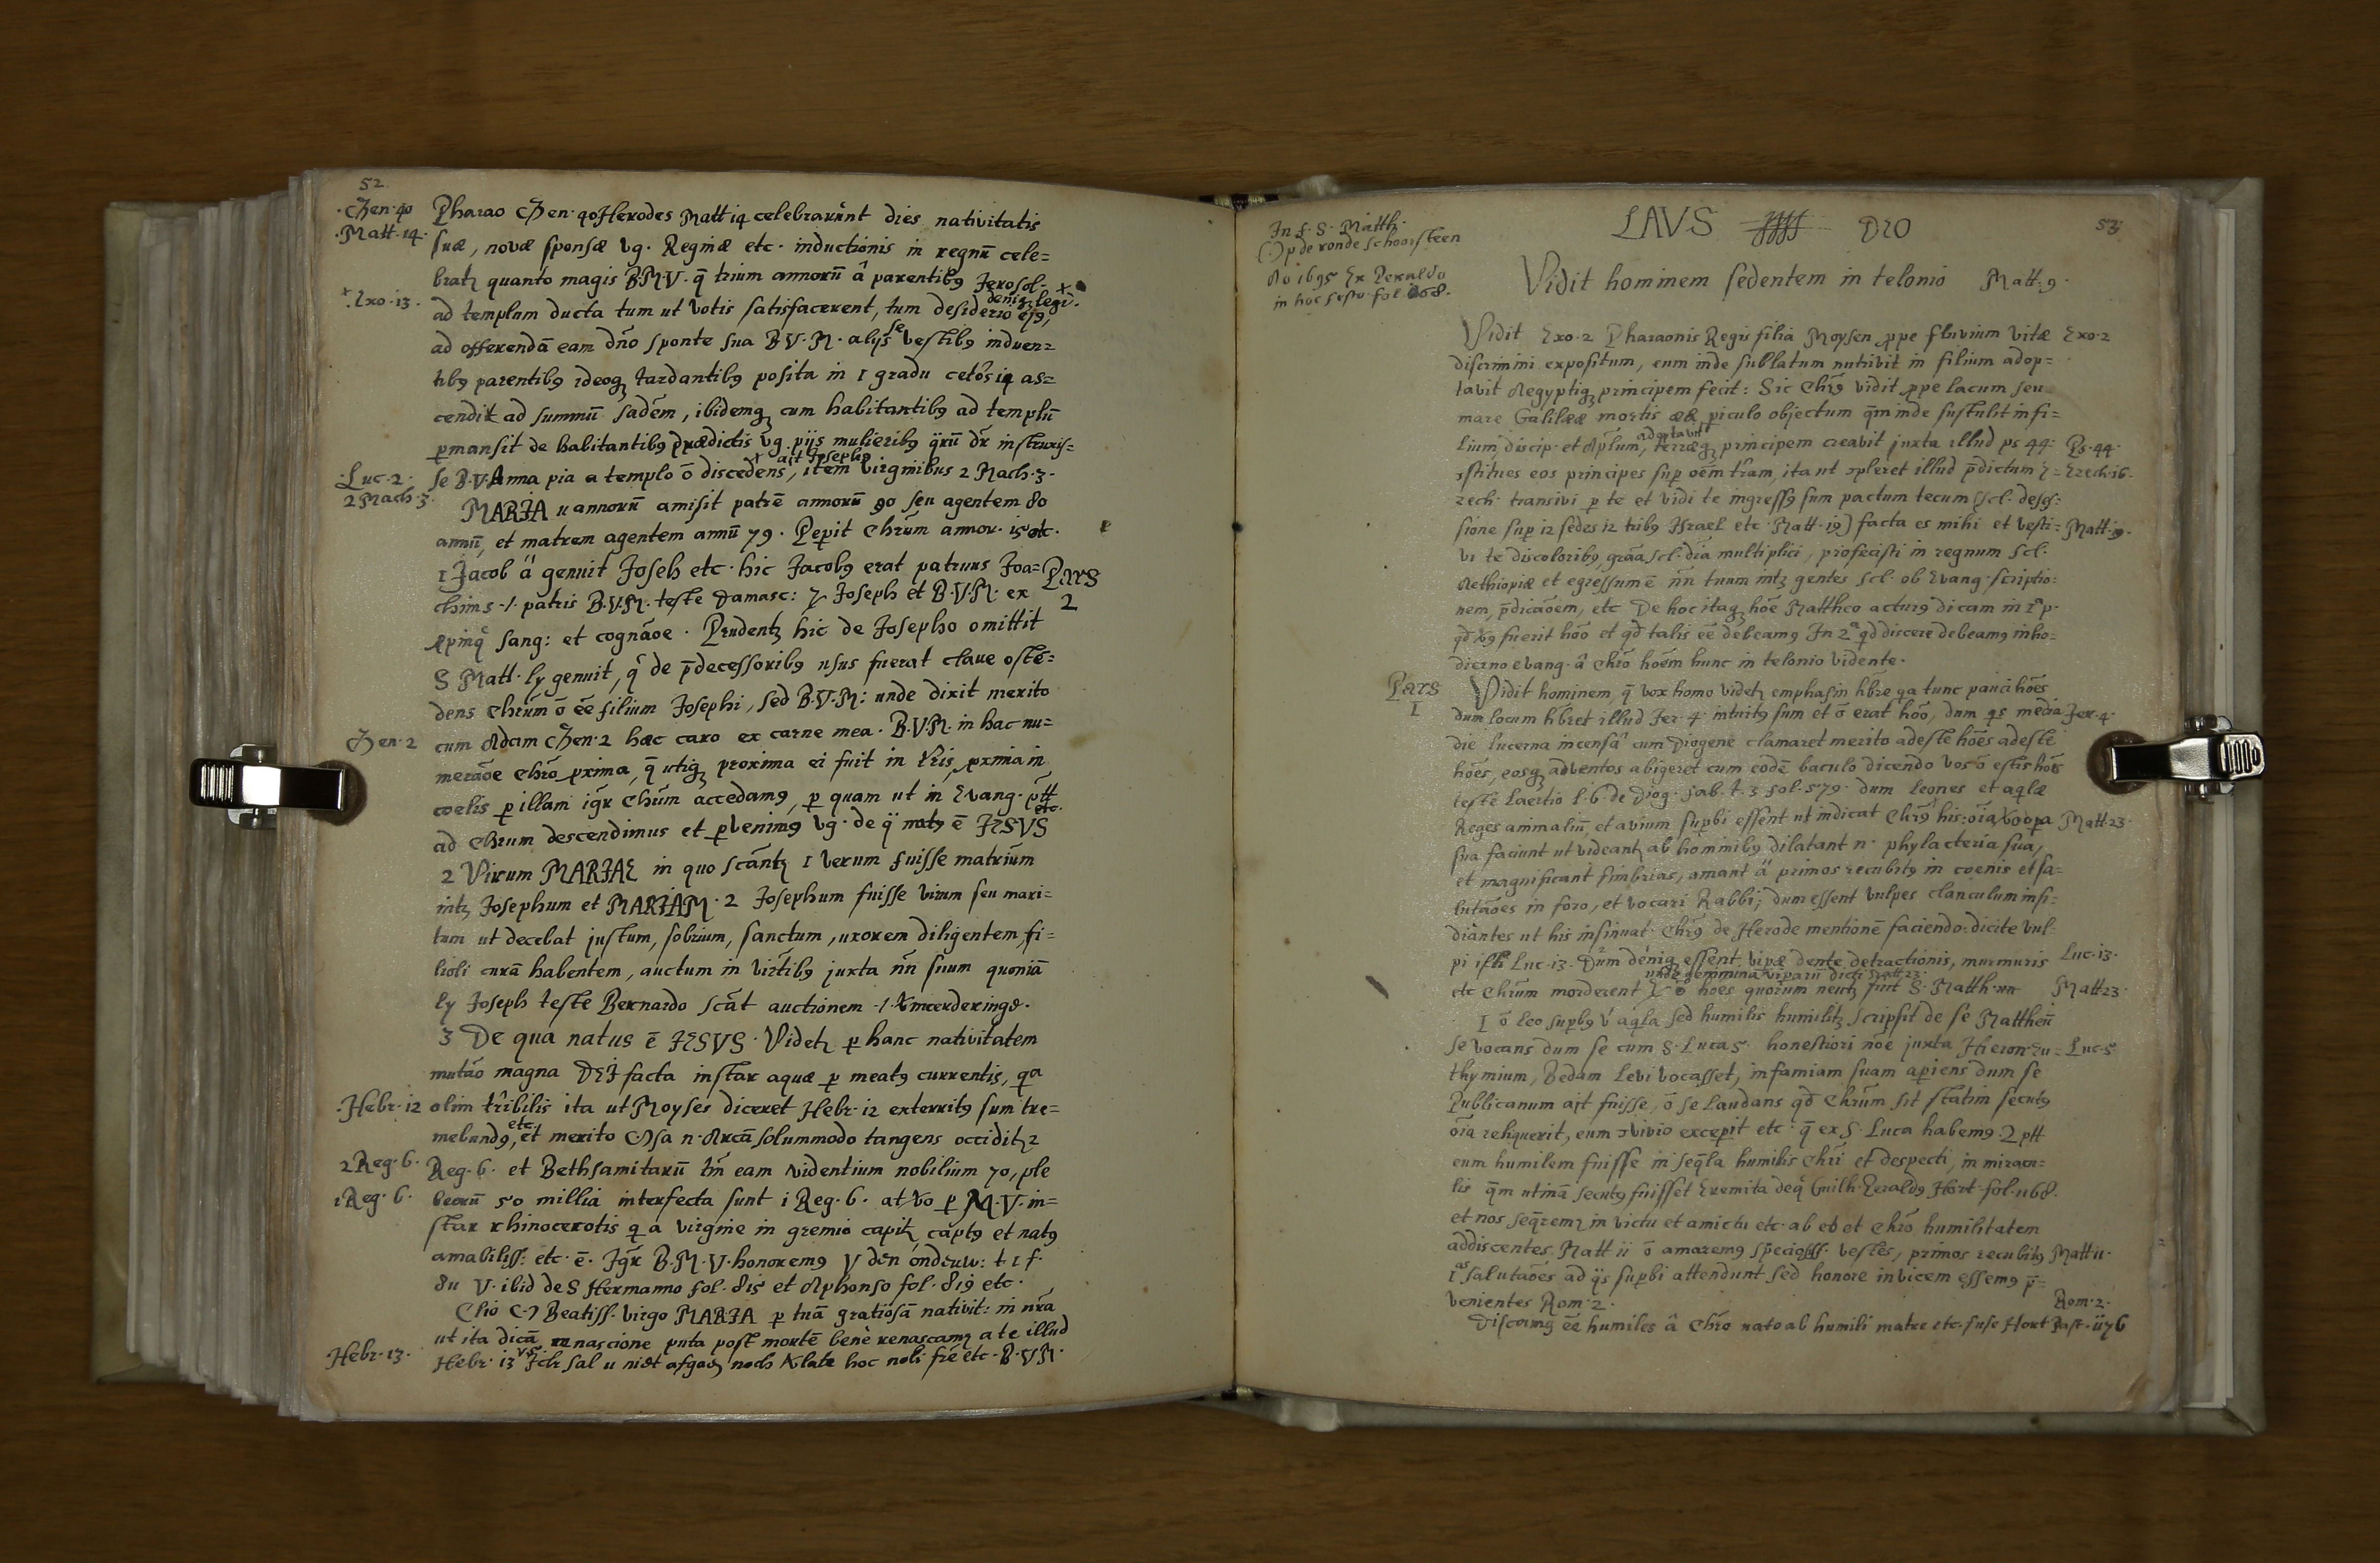 52
Gen. 40 Pharao Gen. 40 Herodes Matt 14 celebrarunt dies nativitatis
Matt. 14. suæ, novæ sponsæ vg. Reginæ etc. inductionis in regnū cele=
bratʒ quanto magis B.M.V. q̄ trium annorū â parentibꝯ Jerosol. x
x Exo. 13. ad templum ducta tum ut votis satisfacerent, tum desiderio ejꝯ,
deniqʒ legi.
ad offerendā eam dño sponte sua B.V.M. alijs se vestibꝯ induen=
tibꝯ parentibꝯ ideoqʒ tardantibꝯ posita in 1 gradu as=
cendit ad summū, ibidemqʒ cum habitantibꝯ ad templū
permansit de habitantibꝯ prædictis vg. pijs mulieribꝯ dr̃ instruxis=
x ait Josephꝯ
Luc. 2. se B.V. Anna pia a templo ō discedens, item virginibus 2 Mach. 3.
2 Mach. 3.
MARIA 11 annorū amisit patrē annorū 90 seu agentem 80
annū, et matrem agentem annū 79. Peperit Chrūm annor. 15 etc.
1 Jacob ā genuit Joseh etc. hic Jacobꝯ erat patruus Joa= Pars
chims .1. patris B.V.M. teste Damasc: Joseph et B.V.M. ex 2
sang: et cognāoe. Prudentʒ hic de Josepho omittit
S Matt. ly genuit, q̂ de p̄decessoribꝯ usus fuerat clare ostē=
dens Chrūm ō ēe filium Josephi, sed B.V.M: unde dixit merito
Gen. 2 cum Adam Gen. 2 hæc caro ex carne mea. B.V.M. in hac nu=
merāoe Chrō prima, q̄ utiqʒ proxima ei fuit in, proxima in
coelis p illam igr̃ Chrum accedamꝯ, p quam ut in Evang. ptt
etc.
ad Chrum descendimus et pvenimꝯ vg. de q̄ natꝯ ē JESVS
2 Virum MARIAE in quo scāntʒ 1 verum fuisse matriūm
intʒ Josephum et MARIAM. 2 Josephum fuisse virum seu mari=
tum ut decebat justum, sobrium, sanctum, uxorem diligentem, fi=
lioli curā habentem, auctum in virtibꝯ juxta nn̄ suum quoniā
ly Joseph teste Bernardo scāt auctionem .1. vmeerderinge.
3 De qua natus ē JESVS. Videtʒ p hanc nativitatem
mutāo magna DEI facta instar aquæ p meatꝯ currentis, qa
Hebr. 12 olim tr̃ibilis ita ut Moyses diceret Hebr. 12 exterritꝯ sum tre=
etc
mebundꝯ, et merito Osa n. Arcā solummodo tangens occiditʒ 2
2 Reg. 6. Reg. 6. et Bethsamitarū tm̄ eam videntium nobilium 70, ple
1 Reg. 6. beorū 50 millia interfecta sunt 1 Reg. 6. at vo p M.V. in=
star rhinocerotis q a virgine in gremio capitʒ captꝯ et natꝯ
amabiliss: etc. ē. Igr̃ B.M.V. honoremꝯ V den onderw: t 1 f.
8u V. ibid de S Hermanno fol. 818 et Alphonso fol. 819 etc.
O Beatiss. virgo MARIA p tuā gratiosā nativit: in nr̃a
ut ita dicā renascione puta post mortē benè renascamꝯ a te illud
Hebr. 13. Hebr. 13 vs Ick sal u niet afgaen noch hoc noli etc. B.V.M.
In f. S. Matth.
Op de ronde schoorsteen
Ao 1695 Ex Peraldo
in hoc festo. fol 268.
LAVS DEO 53
Vidit hominem sedentem in telonio Matt. 9.
Vidit Exo. 2 Pharaonis Regis filia Moysen ppe fluvium vitæ Exo. 2
discrimini expositum, eum inde sublatum nutrivit in filium adop=
tavit Aegyptiqʒ principem fecit: Sic Chrꝯ vidit ppe lacum seu
mare Galilææ mortis periculo objectum q̄m inde sustulit in fi=
adoptavit
lium, discip. et Aplum, terræqʒ principem creavit juxta illud ps 44: Ps. 44.
ꝯstitues eos principes sup oēm trām, ita ut ꝯpleret illud p̄dictum E= Ezech. 16.
zech. transivi p te et vidi te ingressꝯ sum pactum tecum (scl. desg:
sione sup 12 sedes 12 tribꝯ Israel etc. Matt. 19) facta es mihi et vesti= Matt. 19.
vi te discoloribꝯ, grāa scl. diā multiplici, profecisti in regnum scl.
Aethiopiæ et egressum ē nn̄ tuum intʒ gentes scl. ob Evang. scriptio:
nem, p̄dicāoem, etc De hoc itaqʒ hōe Mattheo acturꝯ dicam in 1a p.
qd vꝯ fuerit hōo et qd talis ēe debeamꝯ In 2a qd discere debeamꝯ in ho=
dierno evang. â Chrō hoēm hunc in telonio vidente.
Pars Vidit hominem, q̄ vox homo videtʒ emphasin hbre qa tunc pauci hōes
1 dum locum hberet illud Jer. 4. intuitꝯ sum et ō erat hōo, dum qs media Jer. 4.
die lucerna incensâ cum Diogene clamaret merito adeste hōes adeste
hōes, eosqʒ adventos abigeret cum eodē baculo dicendo vos ō estis hōes
teste Laertio l. 6. de Diog. Sab. t. 3 fol. 579. dum leones et aqlæ
Reges animaliū, et avium supbi essent ut indicat Chrꝯ his: oīa vo opa Matt 23.
sua faciunt ut videantʒ ab hominibꝯ dilatant n. phylacteria sua,
et magnificant fimbrias, amant ā primos recubitꝯ in coenis et sa=
lutāoes in foro, et vocari Rabbi; dum essent vulpes clanculum insi=
diāntes ut his insinuat Chrꝯ de Herode mentionē faciendo: dicite vul=
pi isti Luc. 13. Dum deniqʒ essent vipæ dente detractionis, murmuris Luc. 13.
unde gemmina viparū dicti Matt. 23.
etc Chrum morderent hōes quorum neutʒ fuit S. Matth. Matt 23.
1 ō leo supbꝯ v aqla sed humilis humilitʒ scripsit de se Mattheū
se vocans dum se cum S. Lucas. honestiori noē juxta Hieron Eu= Luc. 5
thymium, Bedam Levi vocasset, infamiam suam apiens dum se
Publicanum ait fuisse, ō se laudans qd Chrūm sit statim secutꝯ
oīa reliquerit, eum ꝯvivio exceperit etc. q̄ ex S. Luca habemꝯ. 2 ptt
eum humilem fuisse in seqla humilis Chri et despecti, in miracu=
lis q̄m utinā secutꝯ fuisset Eremita de q̂ Guilh. Peraldꝯ Hort. fol. 1168.
et nos seq̄remʒ in victu et amictu etc. ab eo et Chrō humilitatem
addiscentes. Matt 11 ō amaremꝯ speciosss. vestes, primos recubitꝯ Matt 11.
1as salutāoes ad qs supbi attendunt sed honore invicem essemꝯ p̄=
venientes Rom. 2. Rom. 2.
Discamꝯ ēe humiles â Chrō nato ab humili matre etc. fuse Hort Past. 1176